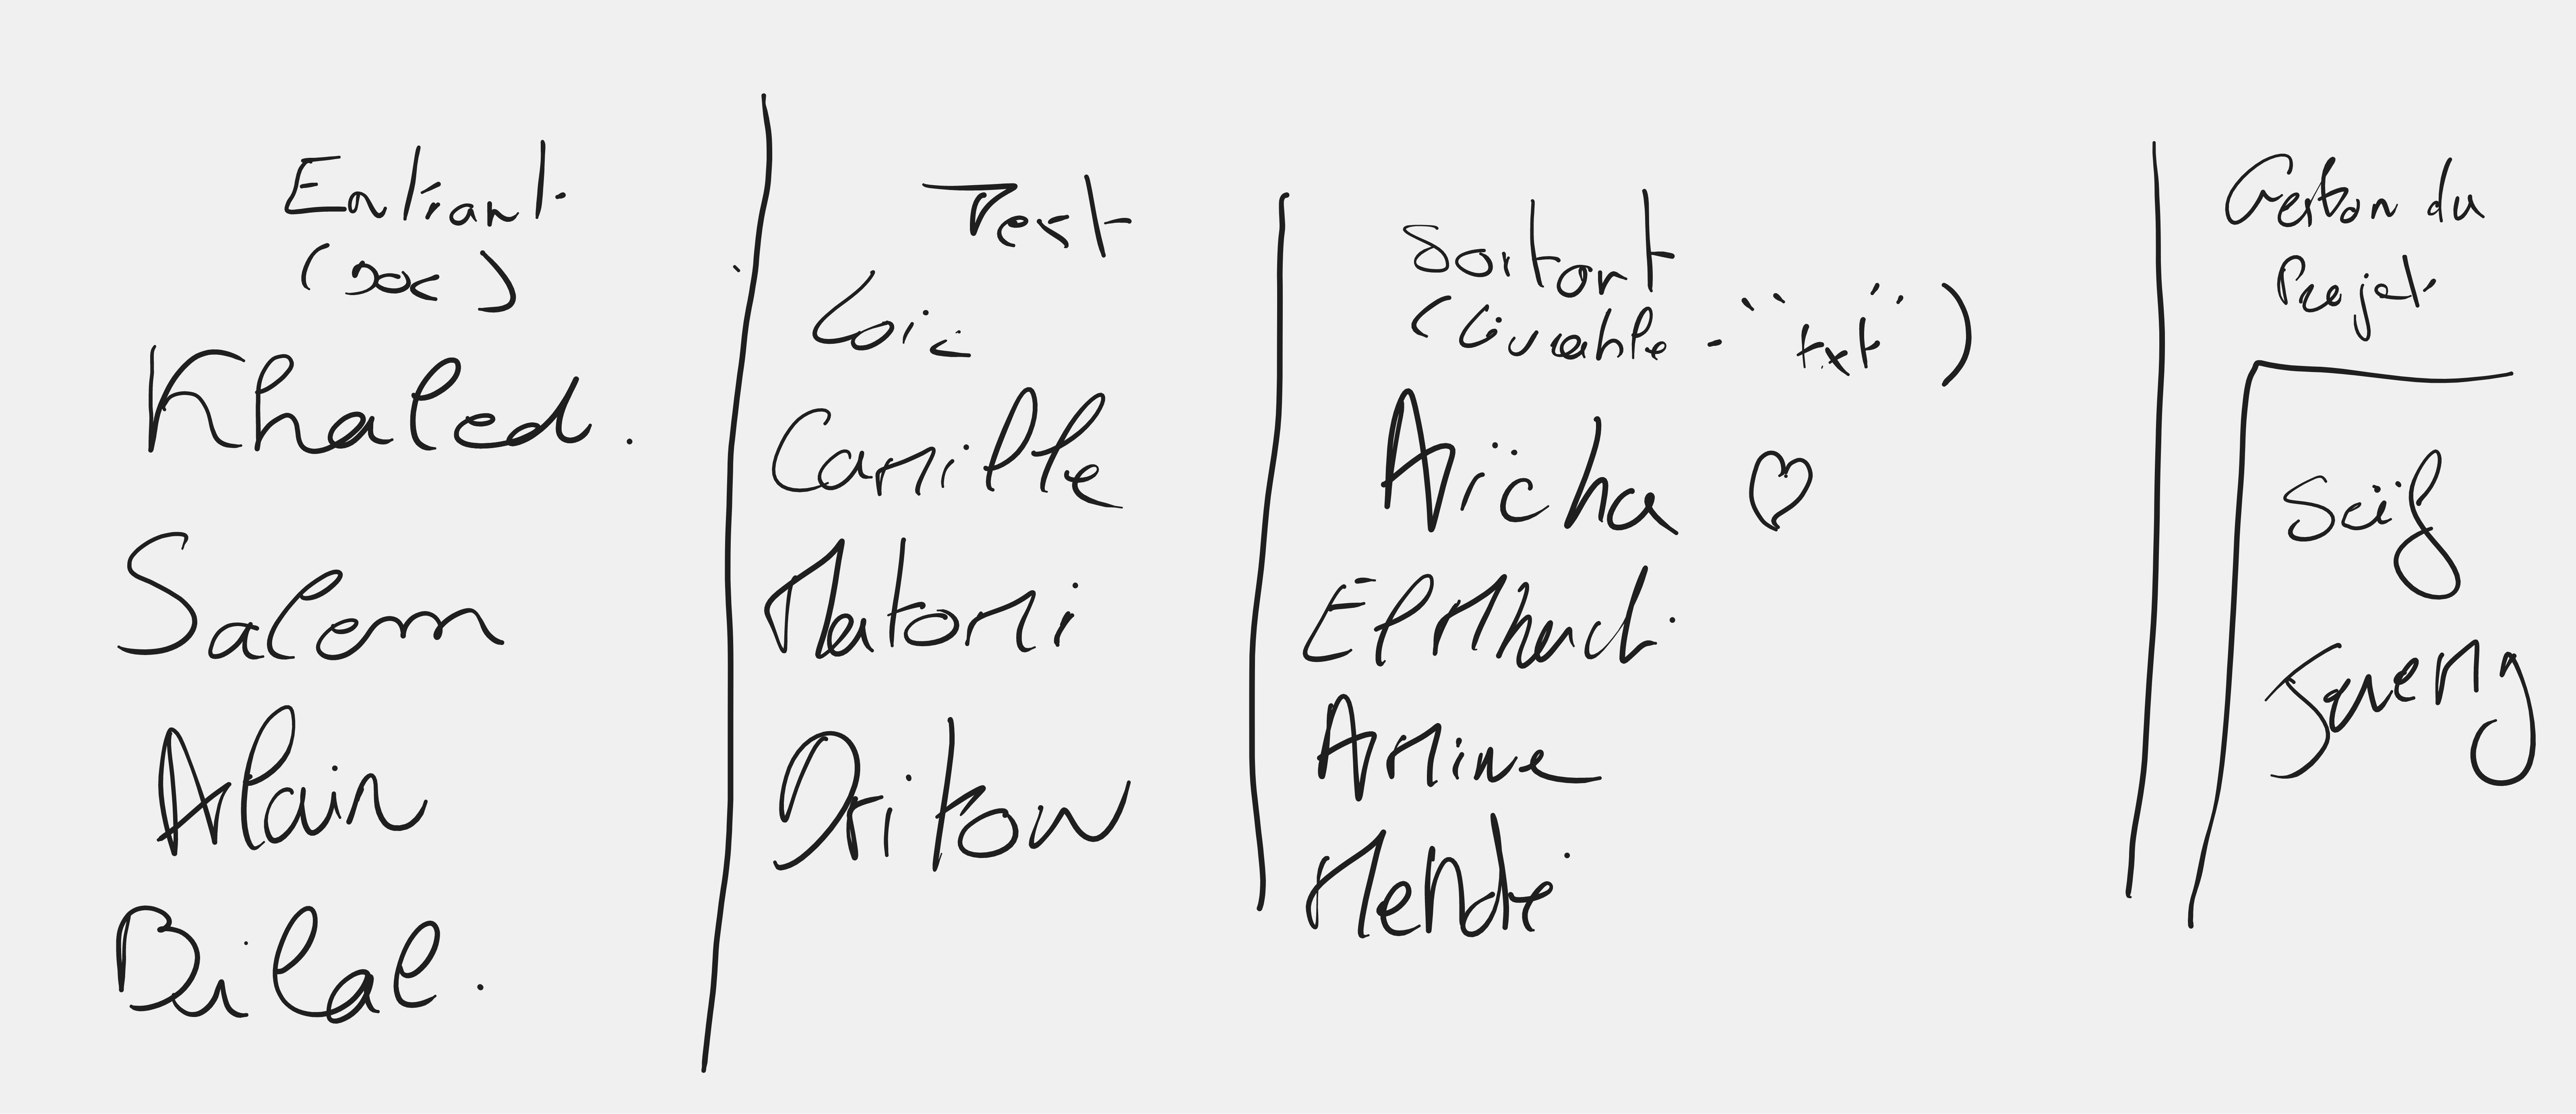 Entrant
(Doc)
Khaled.
Salem
Alain
Bilal.
Test
Loic
Camille
Matomi
Oritow
Sortant
(Livrable - "txt")
Aïcha ♡
El Mhend.
Amine
Mehdi
Gestion du
Projet
Seïf